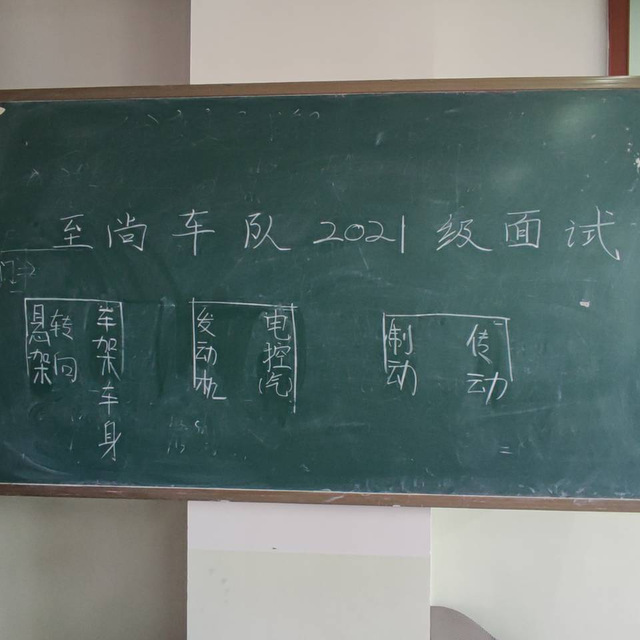 至尚车队2021级面试
悬架
转向
车架车身
发动机
电控汽
制动
传动